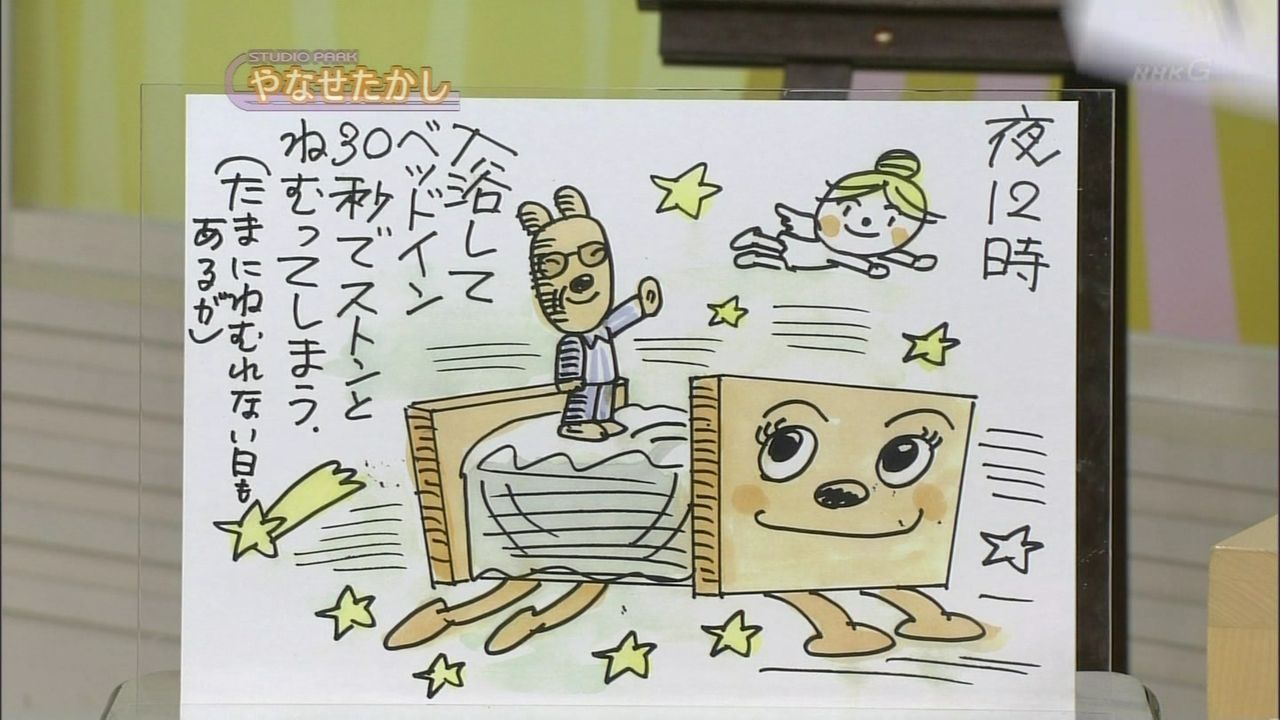 STUDIO PARK
やなせたかし
NHKG
夜12時
入浴して
ベッドイン
30秒でストンと
ねむってしまう.
(たまにねむれない日も
あるが)